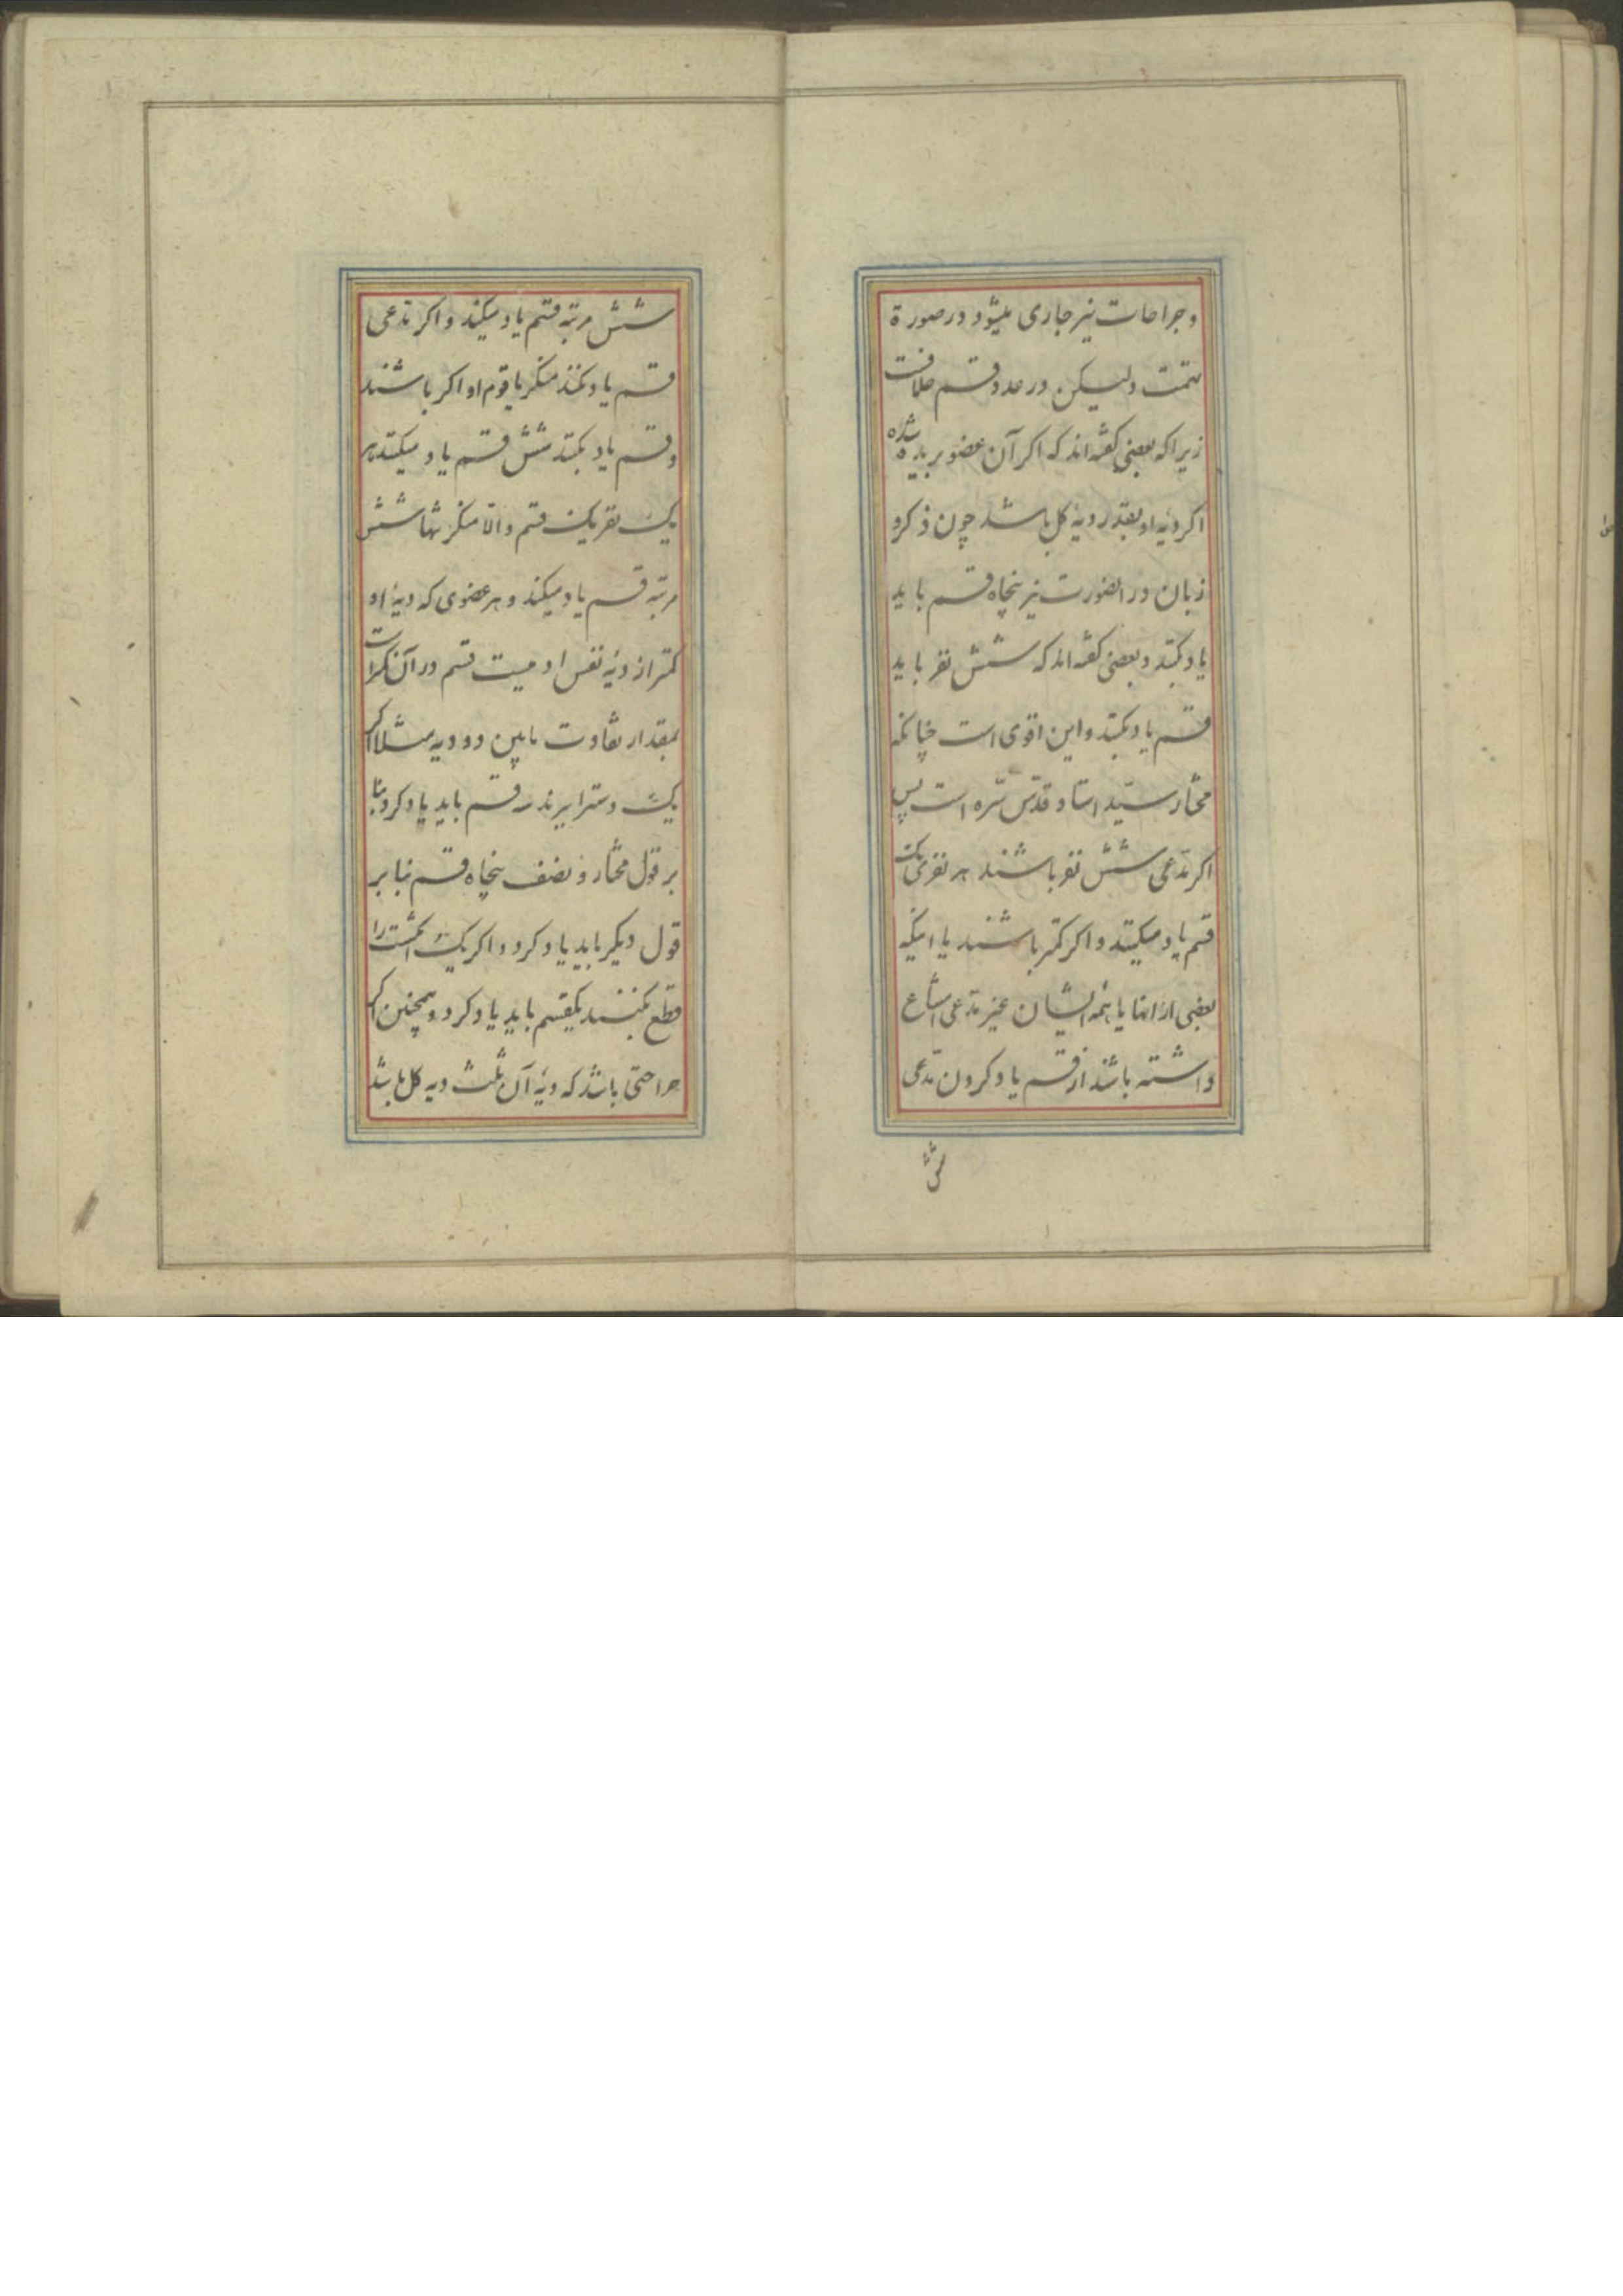 و جراحات نیز جاری میشود در صورة
تهمت ولیکن در عدد قسم خلافت
زیرا که بعضی گفته‌اند که اگر آن عضو بریده شده
اگر دیهٔ او بقدر دیهٔ کل باشد چون ذکر و
زبان در انصورت نیز پنجاه قسم باید
یاد بکند و بعضی گفته‌اند که شش نفر باید
قسم یاد بکند و این اقوی است چنانکه
مختار سیّد استاد قدّس سّره است پس
اگر مدّعی شش نفر باشند هر نفری یک
قسم یاد میکنند و اگر کمتر باشند یا اینکه
بعضی از انها یا همه ایشان غیر مدّعی امتناع
داشته باشند از قسم یاد کردن مدّعی
شش
شش مرتبه قسم یاد میکند و اگر مدّعی
قسم یاد نکند منکر با قوم او اگر باشند
و قسم یاد بکنند شش قسم یاد میکنند هر
یک نفر یک قسم و الّا منکر تنها شش
مرتبه قسم یاد میکند و هر عضوی که دیهٔ او
کمتر از دیهٔ نفس اوست قسم در آن
بمقدار تفاوت مابین دو دیه مثلا اگر
یک دست را ببرند سه قسم باید یاد کرد بنا
بر قول مختار و نصف پنجاه قسم بنا بر
قول دیگر باید یاد کرد و اگر یک انگشت را
قطع بکنند یکقسم باید یاد کرد و همچنین اگر
جراحتی باشد که دیهٔ آن ثلث دیه کل باشد